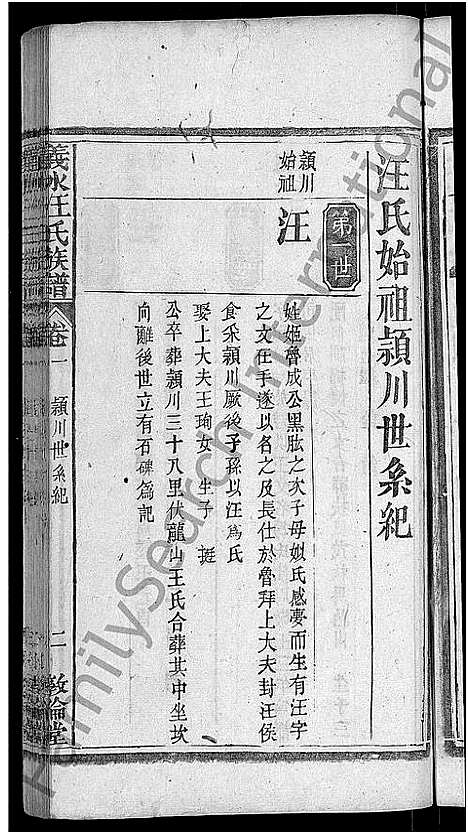 汪氏始祖潁川世系紀
第一世
潁川
始祖
汪
姓姬魯成公黑肱之次子母姒氏感夢而生有汪字
之文在手遂以名之及長仕於魯拜上大夫封汪侯
食采潁川厥後子孫以汪為氏
娶上大夫王珣女 生子 挺
公卒葬潁川三十八里伏龍山王氏合葬其中坐坎
向離後世立有石碑為記
義水汪氏族譜 卷一 潁川世系紀 二 敦倫堂
FamilySearch International